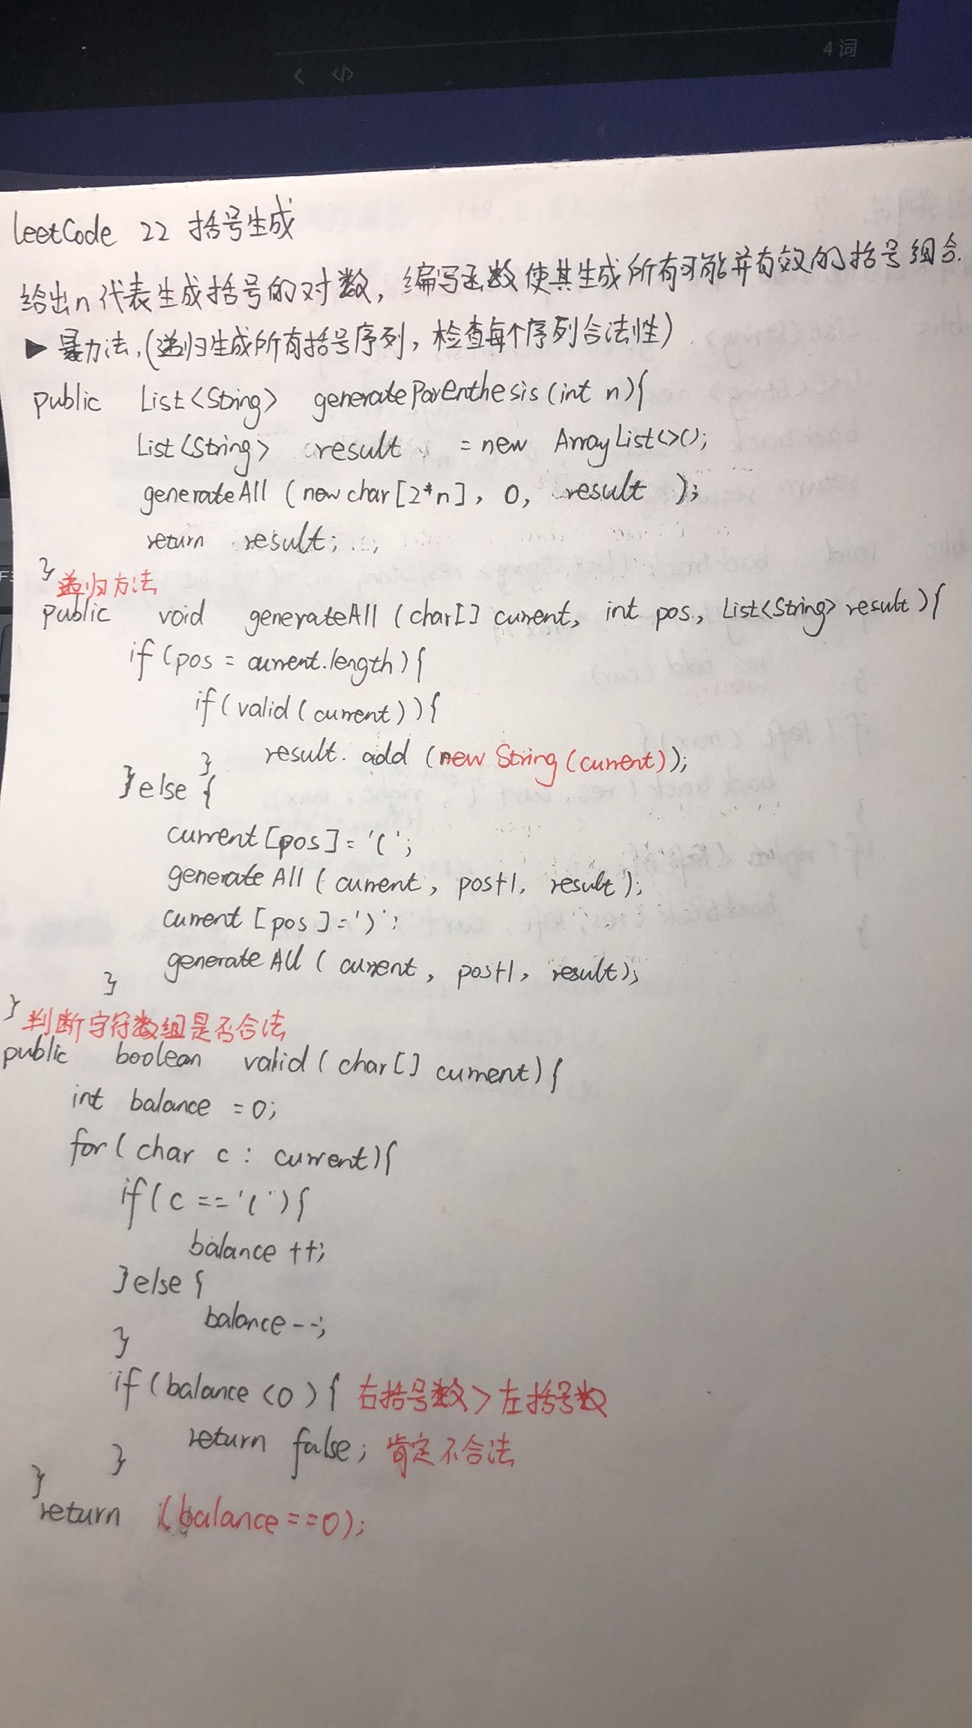 4 词
leetCode 22 括号生成
给出n代表生成括号的对数，编写函数使其生成所有可能并有效的括号组合.
▶ 暴力法,(递归生成所有括号序列，检查每个序列合法性)
public List<String> generateParenthesis(int n){
List<String> result = new ArrayList<>();
generateAll (new char[2*n], 0, result );
return result;
}
递归方法
public void generateAll (char[] current, int pos, List<String> result){
if(pos = current.length){
if(valid(current)){
result. add (new String(current));
}
}else {
current[pos]='(';
generateAll ( current, pos+1, result);
current [pos]=')';
generateAll ( current, pos+1, result);
}
}
判断字符数组是否合法
public boolean valid(char[] current){
int balance =0;
for( char c : current){
if( c =='('){
balance ++;
}else {
balance--;
}
if(balance <0){ 右括号数>左括号数
return false; 肯定不合法
}
}
return (balance==0);